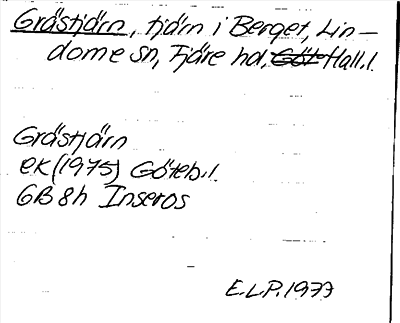 Grästjärn, tjärn i Berget, Lin-
dome sn, Fjäre hd, Göt Hall.l.
Grästjärn
EK (1975) Göteb.l.
6B 8h Inseros
E.L.P. 1977